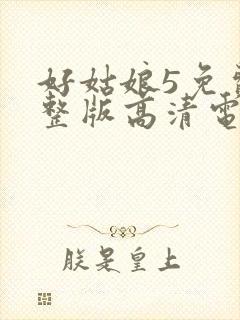 好姑娘5免
整版高清電
朕是皇上